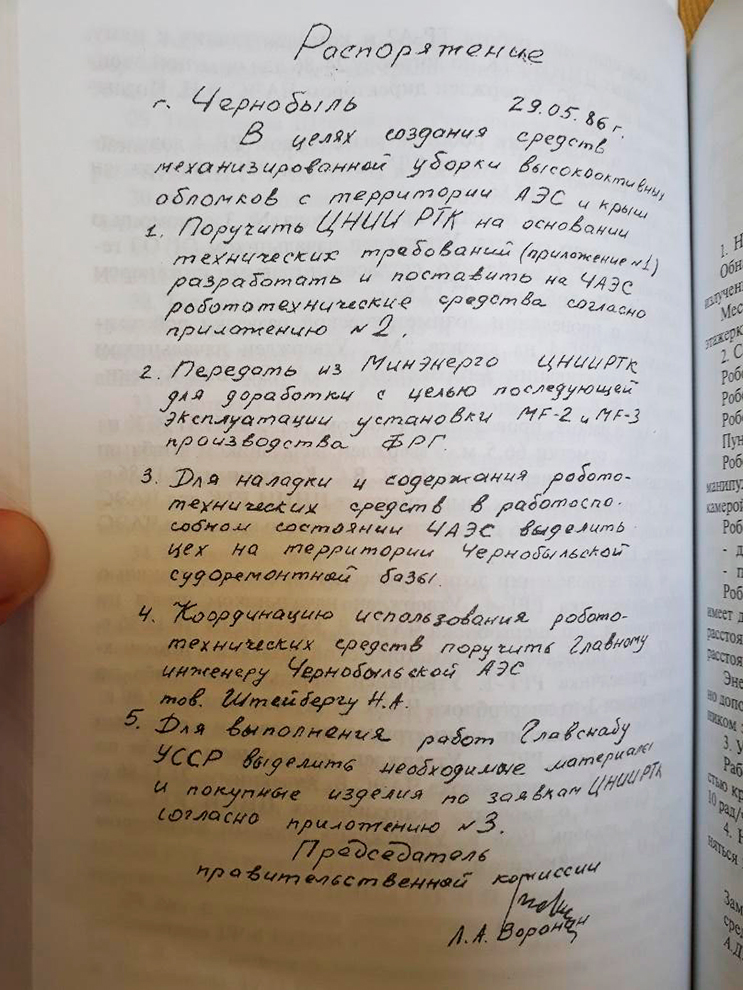 Распоряжение
г. Чернобыль 29.05.86 г.
В целях создания средств
механизированной уборки высокоактивных
обломков с территории АЭС и крыш
1. Поручить ЦНИИ РТК на основании
технических требований (приложение №1)
разработать и поставить на ЧАЭС
робототехнические средства согласно
приложению №2,
2. Передать из Минэнерго ЦНИИРТК
для доработки с целью последующей
эксплуатации установки MF-2 и MF-3
производства ФРГ.
3. Для наладки и содержания робото-
технических средств в работоспо-
собном состоянии ЧАЭС выделить
цех на территории Чернобыльской
судоремонтной базы.
4. Координацию использования робото-
технических средств поручить Главному
инженеру Чернобыльской АЭС
тов. Штейбергу Н.А.
5. Для выполнения работ Главснабу
УССР выделить необходимые материалы
и покупные изделия по заявкам ЦНИИРТК
согласно приложению №3.
Председатель
правительственной комиссии
Л.А. Воронин
1. Н
Обна
излучени
Мес
этажерк
2. С
Робо
Робо
Робо
Пун
Роб
манипу
камерой
Роб
- д
- п
Роб
имеет д
расстоя
расстоя
Эне
но допо
ником
3. У
Раб
стью кр
10 рад/
4. Н
няться
Зам
сред
А.Д